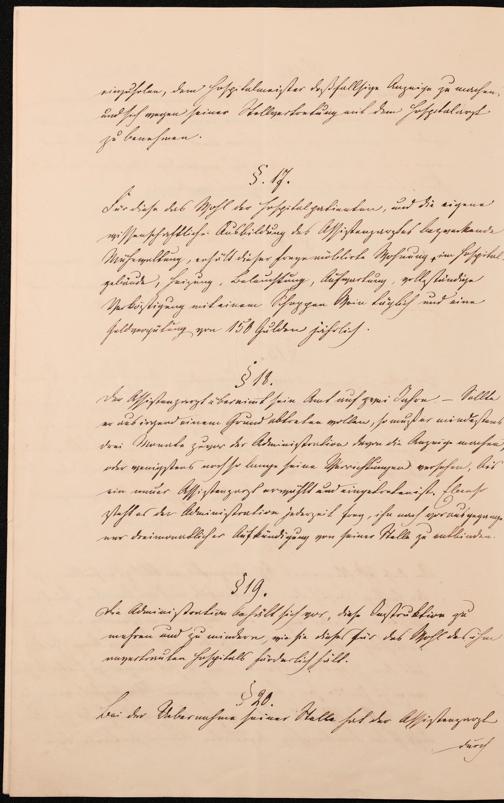 einzuholen, dem Hospitalmeister deßfallsige Anzeige zu machen,
und sich wegen seiner Stellvertretung mit dem Hospitalarzt
zu benehmen.
§. 17.
Für diese das Wohl der Hospitalpatienten, und die eigene
wissenschaftliche Ausbildung des Assistenzarztes bezweckende
Mühewaltung, erhält dieser freye möblirte Wohnung im Hospital-
gebäude, Heizung, Beleuchtung, Aufwartung, vollständige
Verköstigung mit einem Schoppen Wein täglich und eine
Geldvergütung von 150 Gulden jährlich.
§ 18.
Der Assistenzarzt übernimmt sein Amt auf zwei Jahre – Sollte
er aus irgend einem Grund abtreten wollen, so muß er mindestens
drei Monate zuvor der Administration davon die Anzeige machen,
oder wenigstens noch so lange seine Verrichtungen versehen, bis
ein neuer Assistenzarzt erwählt und eingetreten ist. Ebenso
steht es der Administration jederzeit frey, ihn nach vorausgegange-
ner dreimonatlicher Aufkündigung von seiner Stelle zu entbinden.
§ 19.
Die Administration behält sich vor, diese Instruktion zu
mehren und zu mindern, wie sie dieses für das Wohl des ihm
anvertrauten Hospitals förderlich hält.
§ 20.
Bei der Uebernahme seiner Stelle hat der Assistenzarzt
durch